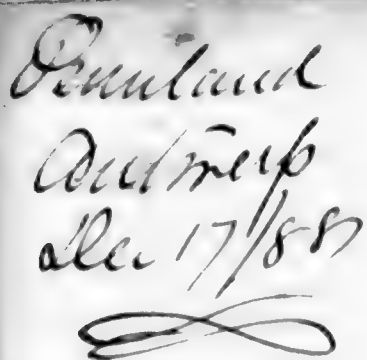 Pennland
Antwerp
Dec 17/88